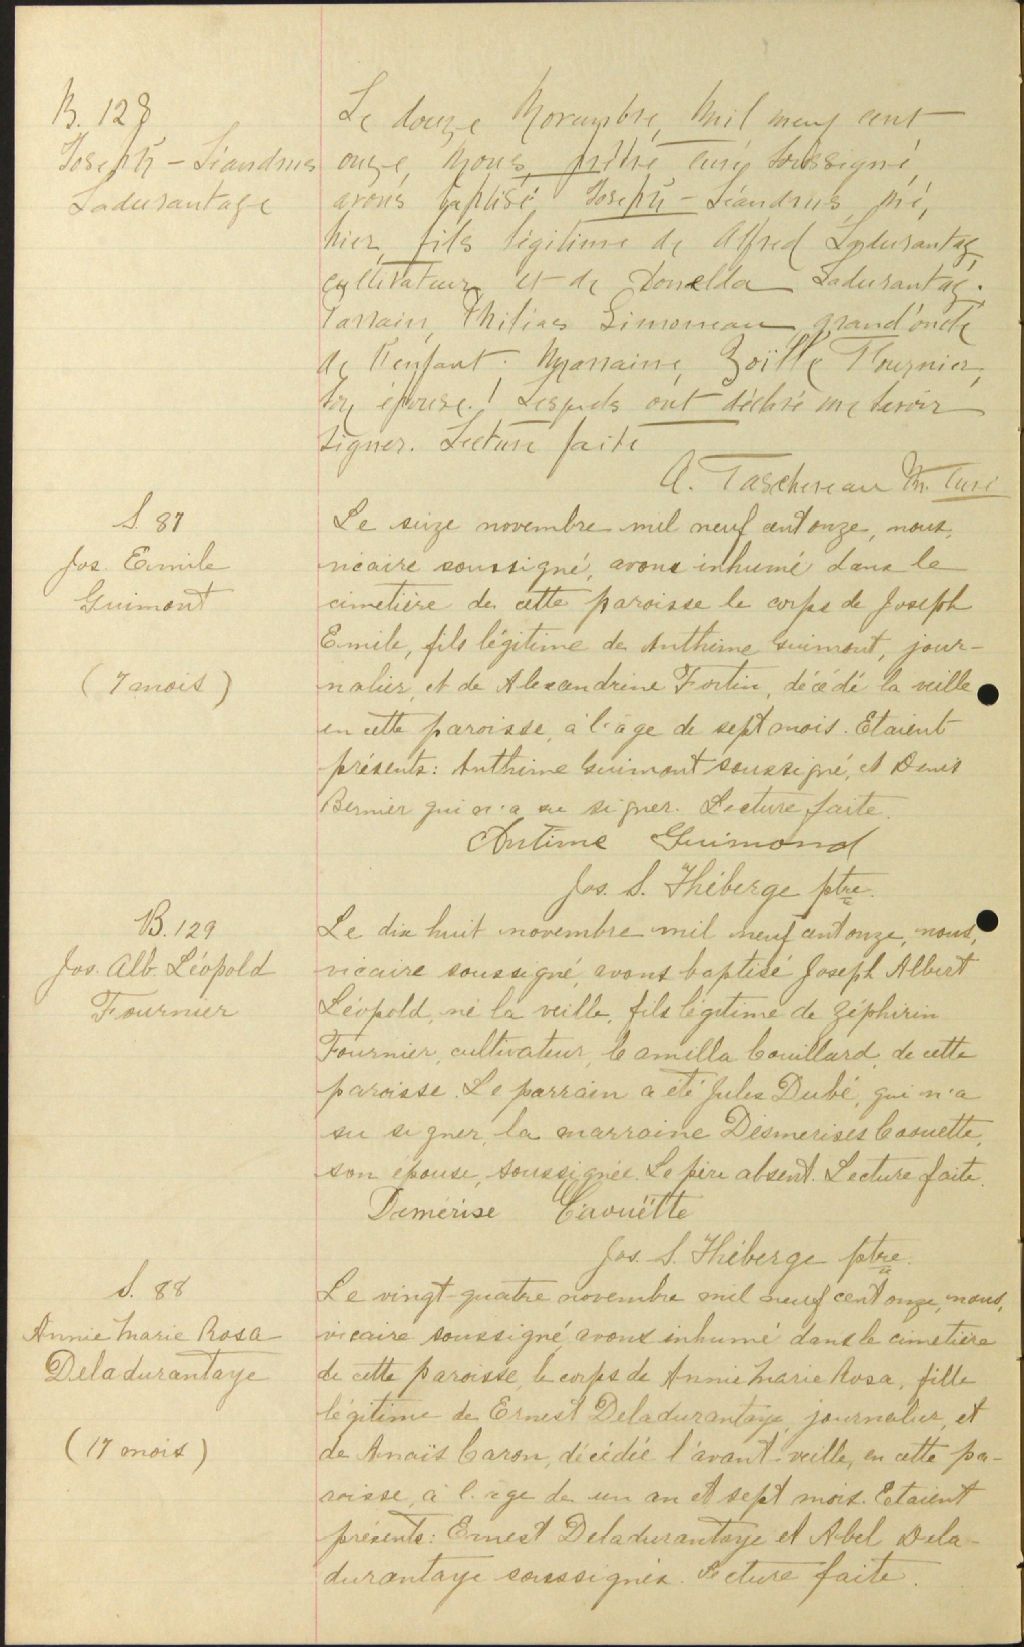 B. 128
Joseph-Léandrus
Ladurantaye
Le douze Novembre, Mil neuf cent
onze, Nous, prêtre curé soussigné,
avons baptisé Joseph-Léandrus, né,
hier, fils légitime de Alfred Ladurantaye,
cultivateur et de Donelda Ladurantaye.
Parrain, Philias Simoneau grand'oncle
de l'enfant. Marraine, Zoïlle Fournier,
son épouse. Lesquels ont déclaré ne savoir
signer. Lecture faite
A. Taschereau Ptr. Curé
S. 87
Jos. Emile
Guimont
(7 mois)
Le seize novembre mil neuf cent onze, nous,
vicaire soussigné, avons inhumé dans le
cimetière de cette paroisse le corps de Joseph
Emile, fils légitime de Anthime Guimont, jour-
nalier, et de Alexandrine Fortin, décédé la veille
en cette paroisse, à l'âge de sept mois. Etaient
présents: Anthime Guimont soussigné, et Denis
Bernier qui n'a su signer. Lecture faite.
Antime Guimond
Jos. S. Théberge ptre.
B. 129
Jos. Alb. Léopold
Fournier
Le dix huit novembre mil neuf cent onze, nous,
vicaire soussigné, avons baptisé Joseph Albert
Léopold, né la veille, fils légitime de Zéphirin
Fournier, cultivateur, Camilla Couillard, de cette
paroisse. Le parrain a été Jules Dubé, qui n'a
su signer, la marraine Desmerises Caouette,
son épouse, soussignée. Le père absent. Lecture faite.
Demérise Caouëtte
Jos. S. Théberge ptre.
S. 88
Annie Marie Rosa
Deladurantaye
(17 mois)
Le vingt-quatre novembre mil neuf cent onze, nous,
vicaire soussigné, avons inhumé dans le cimetière
de cette paroisse, le corps de Annie Marie Rosa, fille
légitime de Ernest Deladurantaye, journalier, et
de Anaïs Caron, décédée l'avant-veille, en cette pa-
roisse, à l'âge de un an et sept mois. Etaient
présents: Ernest Deladurantaye et Abel Dela-
durantaye soussignés. Lecture faite.